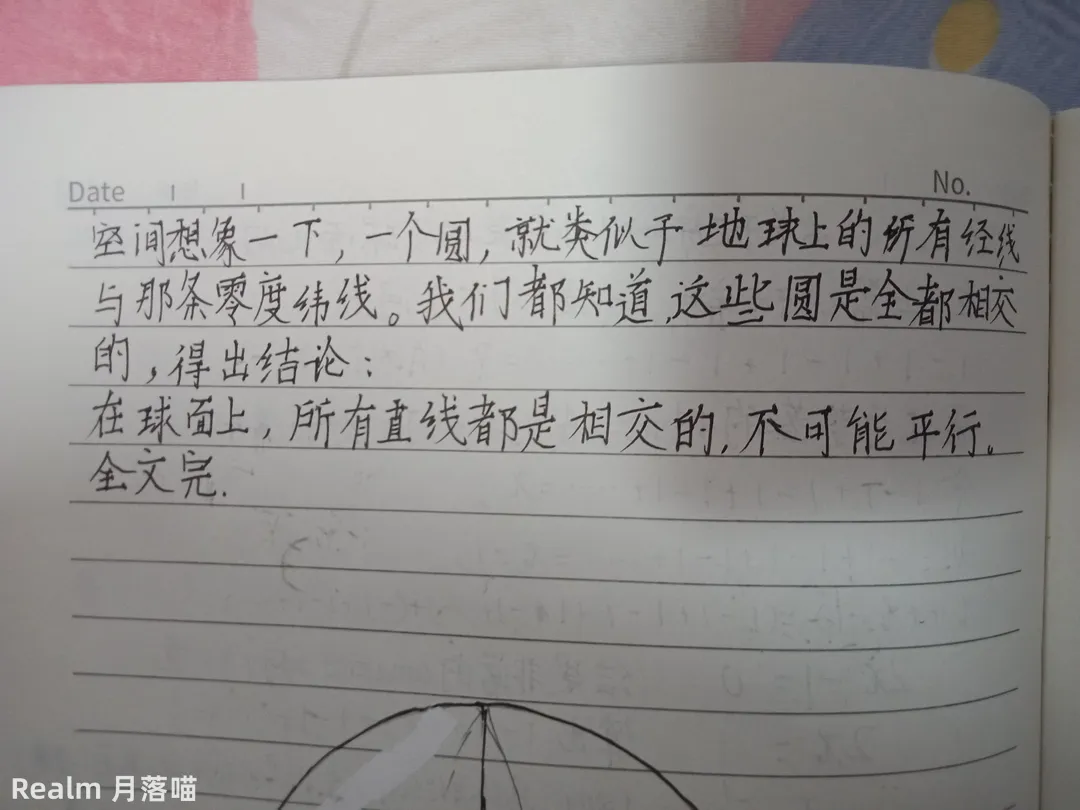 Date
No.
空间想象一下，一个圆，就类似于地球上的所有经线
与那条零度纬线。我们都知道,这些圆是全都相交
的，得出结论：
在球面上，所有直线都是相交的,不可能平行。
全文完.
Realm 月落喵